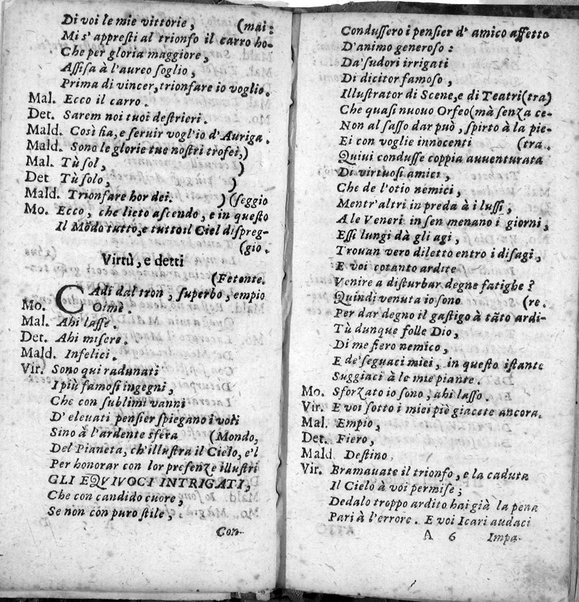 Di voi le mie vittorie, (mai:
Mi s'appresti al trionfo il carro ho-
Che per gloria maggiore,
Assisa à l'aureo soglio,
Prima di vincer, trionfare io voglio.
Mal. Ecco il carro.
Det. Sarem noi tuoi destrieri.
Mald. Così sia, e seruir vogl'io d'Auriga.
Mald. Sono le glorie tue nostri trofei,)
Mal. Tù sol, )
Det Tù solo, )
Mald. Trionfare hor dei. ) (seggio
Mo. Ecco, che lieto ascendo, e in questo
Il Modo tutto, e tutto il Ciel dispreg-
(gio.
Virtù, e detti
(Fetonte.
CAdi dal tron, superbo, empio
Mo. Oimè.
Mal. Ahi lasse.
Det. Ahi misere.
Mald. Infelici.
Vir. Sono qui radunati
I più famosi ingegni,
Che con sublimi vanni
D'eleuati pensier spiegano i voli
Sino à l'ardente sfera (Mondo,
Del Pianeta, ch'illustra il Cielo, e'l
Per honorar con lor presenze illustri
GLI EQVIVOCI INTRIGATI,
Che con candido cuore,
Se non con puro stile,
Con-
Condussero i pensier d'amico affetto
D'animo generoso:
Da'sudori irrigati
Di dicitor famoso,
Illustrator di Scene, e di Teatri (tra)
Che quasi nuouo Orfeo (mà senza ce-
Non al sasso dar può, spirto à la pie-
Ei con voglie innocenti (tra.
Quiui condusse coppia auuenturata
Di virtuosi amici,
Che de l'otio nemici,
Mentr'altri in preda à i lussi,
A le Veneri in sen menano i giorni,
Essi lungi dà gli agi,
Trouan vero diletto entro i disagi,
E voi cotanto ardite
Venire a disturbar degne fatighe?
Quindi venuta io sono (re.
Per dar degno il gastigo à tãto ardi-
Tù dunque folle Dio,
Di me fiero nemico,
E de'seguaci miei, in questo istante
Suggiaci à le mie piante.
Mo. Sforzato io sono, ahi lasso.
Vir. E voi sotto i miei piè giacete ancora.
Mal. Empio,
Det. Fiero,
Mald Destino.
Vir. Bramauate il trionfo, e la caduta
Il Cielo à voi permise;
Dedalo troppo ardito hai già la pena
Pari à l'errore. E voi Icari audaci
A 6 Impa-